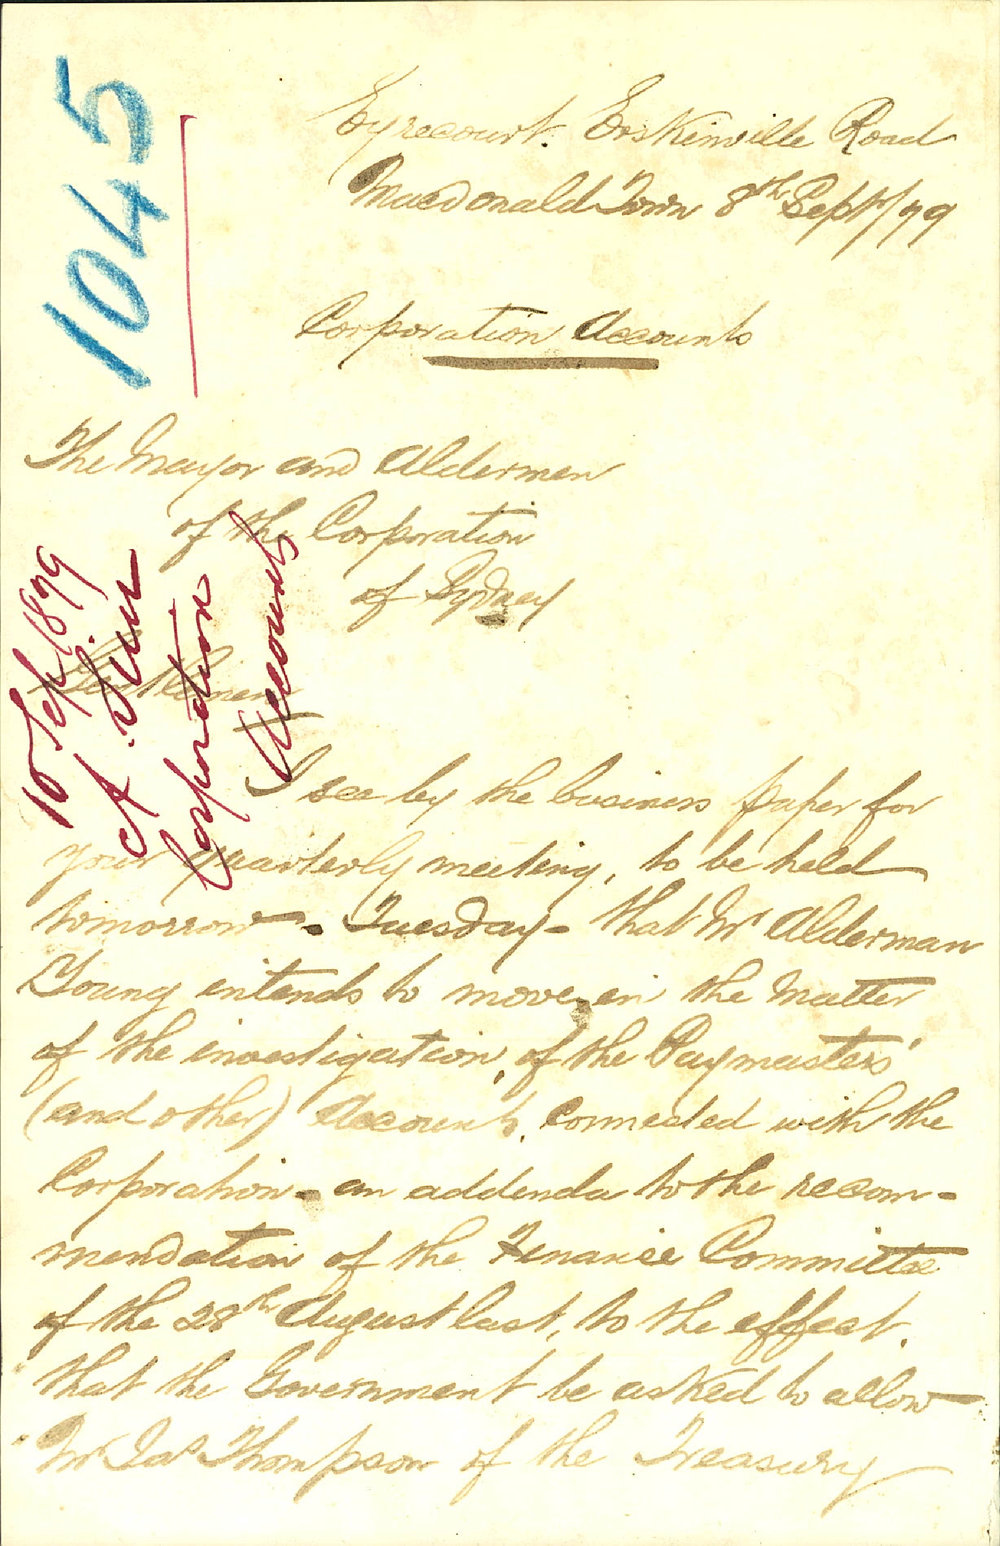 1045
Eyrecourt. Erskinville Road
Macdonald Town 8th Sept/79
Corporation Accounts
The Mayor and Aldermen
of the Corporation
of Sydney
10 Sep 1879
Corporation
Accounts
Gentlemen
I see by the business paper for
your quarterly meeting, to be held
tomorrow - Tuesday - that Mr Alderman
Young intends to move, in the Matter
of the investigation, of the Paymasters'
(and other) Accounts, connected with the
Corporation - an addenda to the recom-
mendation of the Finance Committee
of the 28th August last, to the effect,
that the Government be asked to allow
Mr Jas Thompson of the Treasury